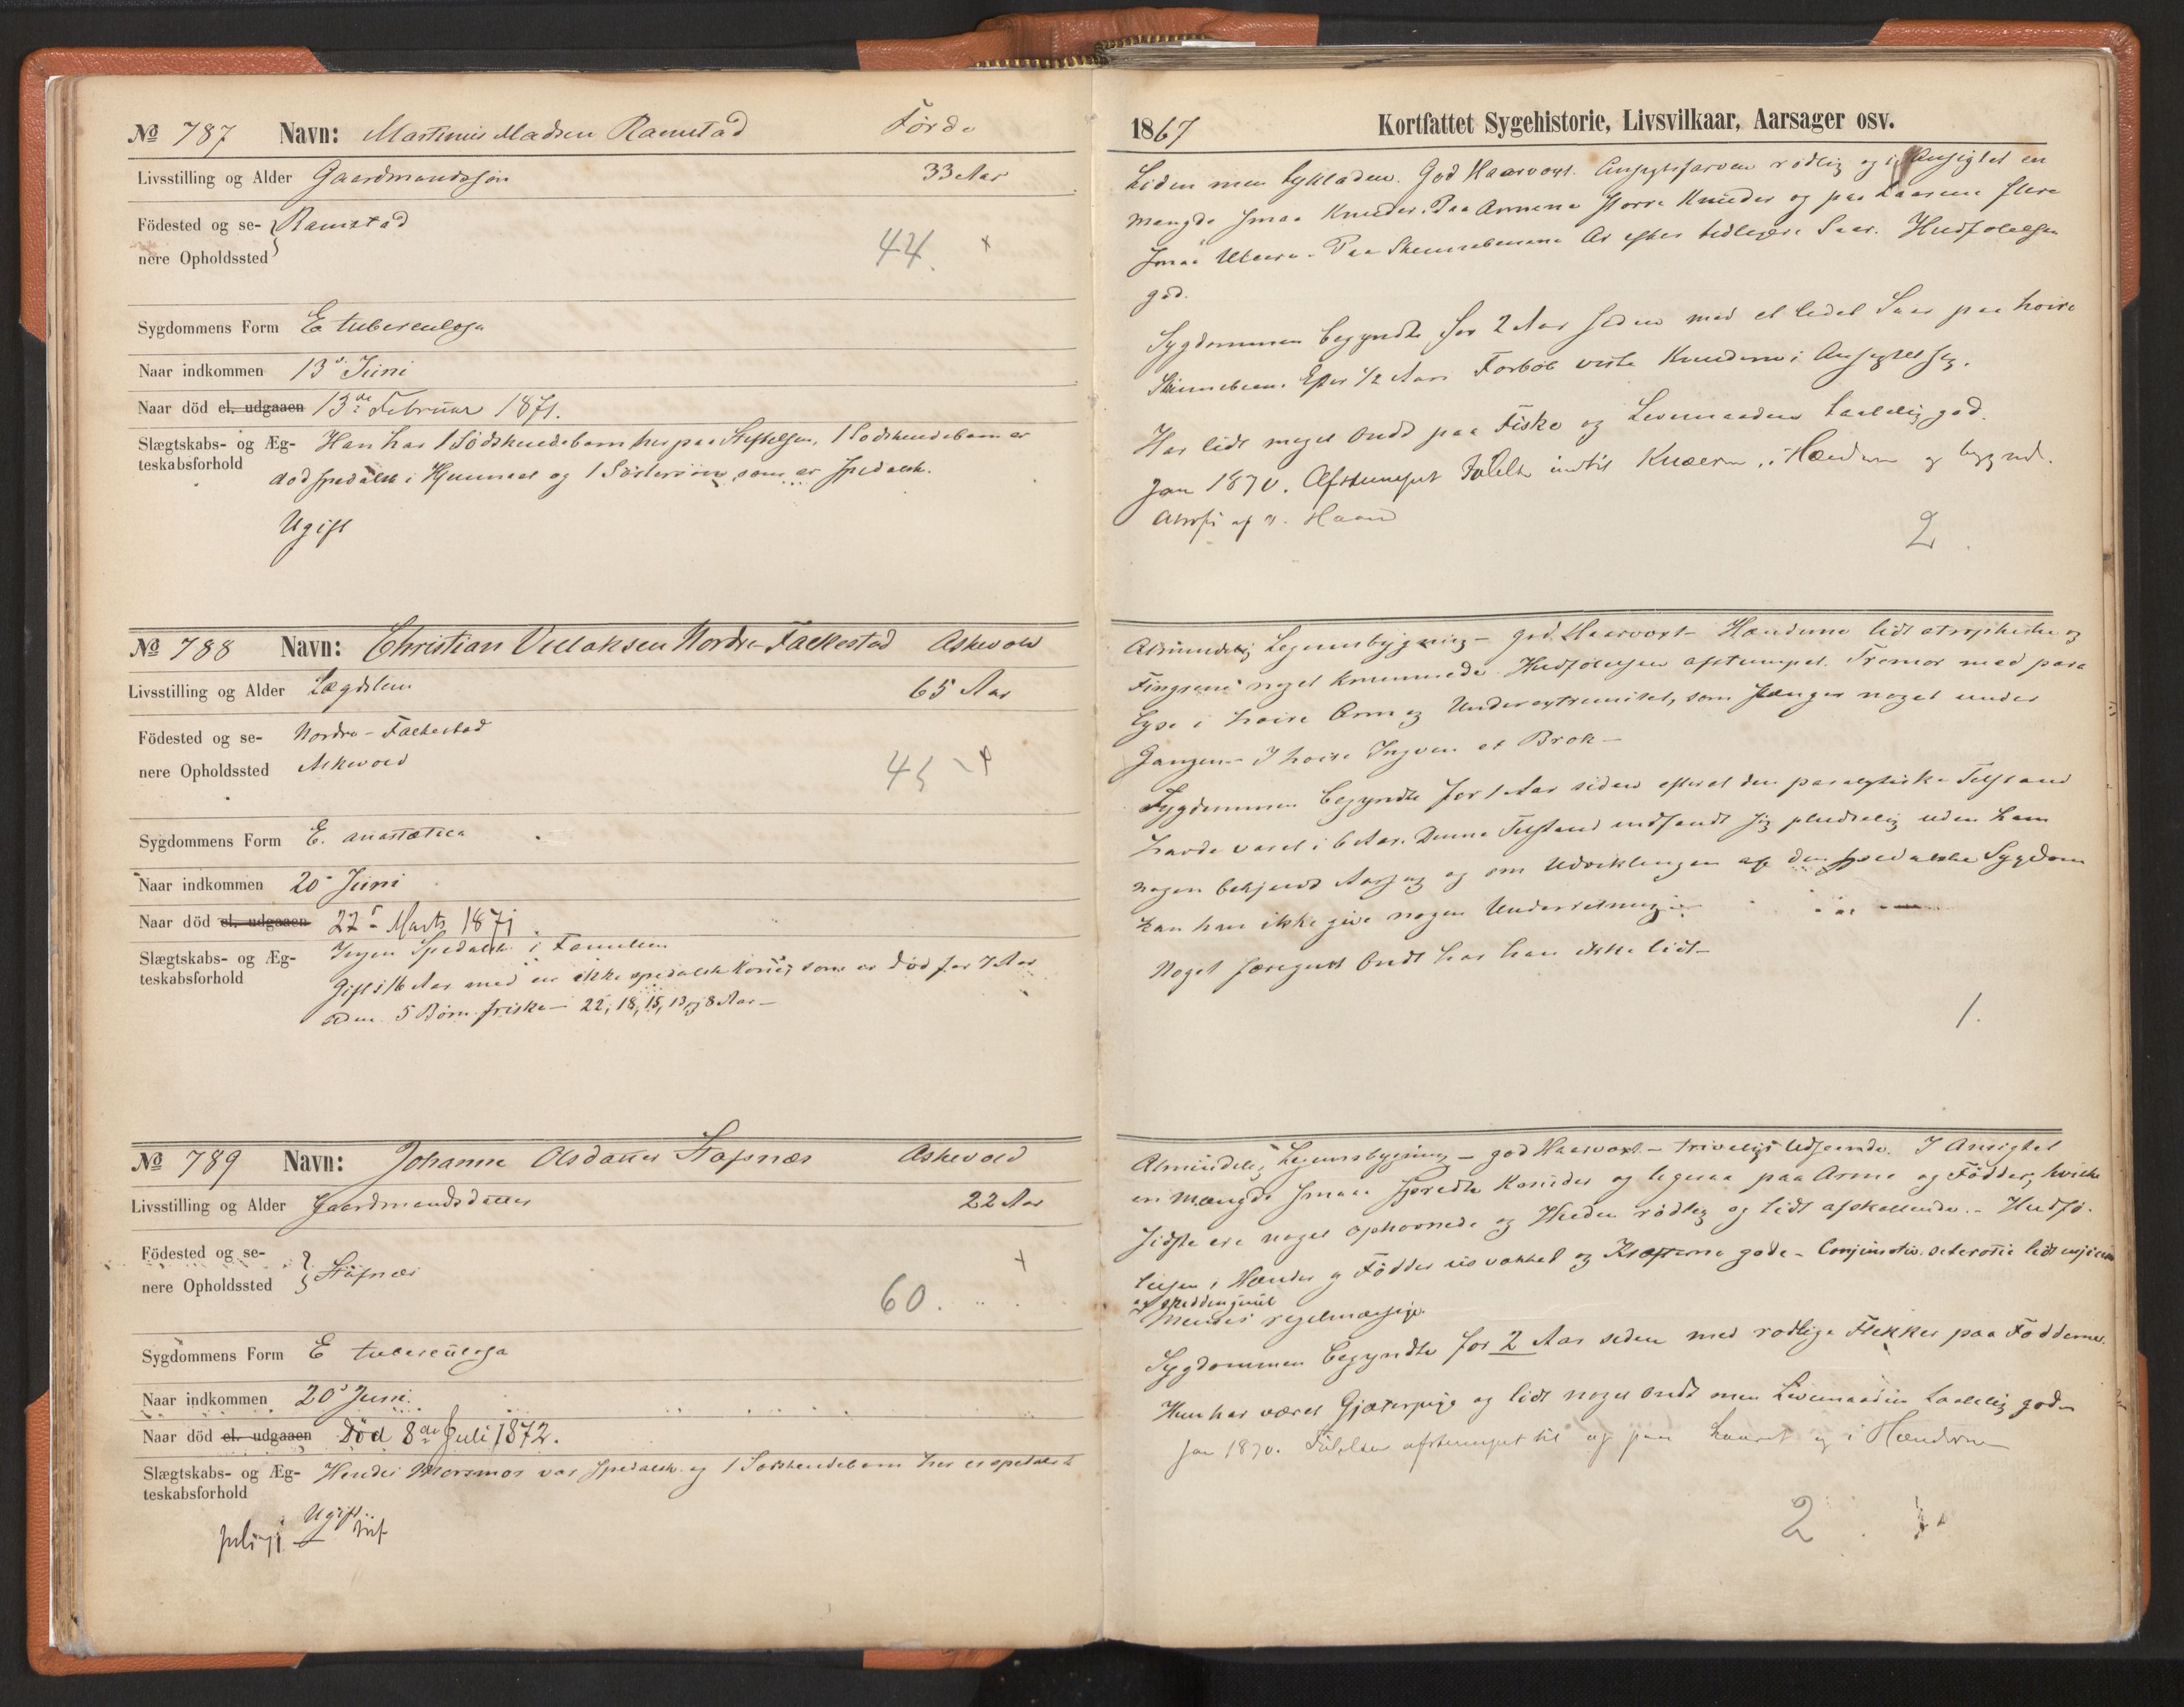 No 787 Navn: Martinus Madsen Ramstad Förde
Livsstilling og Alder Gaardmandssøn 33 Aar
Födested og se- Ramstad
nere Opholdssted 44. x
Sygdommens Form E tuberculosa
Naar indkommen 13de Juni
Naar död el. udgaaen 13de Februar 1871.
Slægtskabs- og Æg- Han har 1 Södskendebarn her paa Stiftelsen, 1 Södskendebarn er
teskabsforhold död spedalsk i Hjemmet og 1 Söstersön som er spedalsk.
Ugift
No 788 Navn: Christian Nordre Falkestad Askevold
Livsstilling og Alder Lægdslem 65 Aar
Födested og se- Nordre-Falkestad
nere Opholdssted Askevold 45 x
Sygdommens Form E. anæstetica
Naar indkommen 20 Juni
Naar död el. udgaaen 22 Marts 1871
Slægtskabs- og Æg- Ingen Spedalsk i Familien
teskabsforhold Gift i 16 Aar med en ikke spedalsk Kone, som er död for 7 Aar
siden 5 Börn friske – 22, 18, 15, 13 og 8 Aar –
No 789 Navn: Johanne Olsdatter Stafsnæs Askevold
Livsstilling og Alder Gaardmandsdatter 22 Aar
Födested og se-
nere Opholdssted Stafnæs 60. +
Sygdommens Form E tuberculosa
Naar indkommen 20 Juni.
Naar död el. udgaaen Död 8de Juli 1872.
Slægtskabs- og Æg- Hendes Morsmor var spedalsk og 1 Södskendebarn her er spedalsk
teskabsforhold
Ugift
Juli 71
1867 Kortfattet Sygehistorie, Livsvilkaar, Aarsager osv.
Liden men tykladen. God Haarvoxt. Ansigtsfarven rödlig og i Ansigtet en
mængde smaa Knuder. Paa Armene större Knuder og paa Laarene flere
smaa Ulcera. Paa Skinnebenene Ar efter tidligere Saar. Hudfölelsen
god.
Sygdommen begyndte for 2 Aar siden med et lidet Saar paa höire
Skinneben. Efter 1/2 Aars Forlöb viste Knuderne i Ansigtet sig.
Har lidt meget Ondt paa Fiske og Levemaaden taalelig god.
Jan 1870. Afstumpet Fölelse indtil Knæerne, i Hænderne og begynd.
Atrofi af v. Haand
2
Almindelig Legemsbygning – god Haarvoxt – Hænderne lidt atrophiske og
Fingrene noget krummede. Hudfölelsen afstumpet. Tremor med para
lyse i höire Arm og Underextremitet, som slænger noget under
Gangen – I höire Ingven et Brok –
Sygdommen begyndte for 1 Aar siden efterat den paralytiske Tilstand
havde varet i 6 Aar. Denne Tilstand indfandt sig pludselig uden ham
nogen bekjendt Aarsag og om Udviklingen af den spedalske Sygdom
kan han ikke give nogen Underretning –
Noget særegent Ondt har han ikke lidt –
1.
Almindelig Legemsbygning – god Haarvoxt – trivelig Udseende. I Ansigtet
en Mængde smaa spredte Knuder og ligesaa paa Arme og Födder, hvilke
sidste ere noget ophovnede og Huden rödlig og lidt afskallende. – Hudfö-
lelsen i Hænder og Födder usvækket og Kræfterne gode –
Menses regelmæssige.
Sygdommen begyndte for 2 Aar siden med rödlige Flekker paa Födderne.
Hun har været Gjæterpige og lidt noget Ondt men Levemaaden taalelig god –
Jan 1870. Fölelsen afstumpet til op paa Laaret og i Hænderne
2